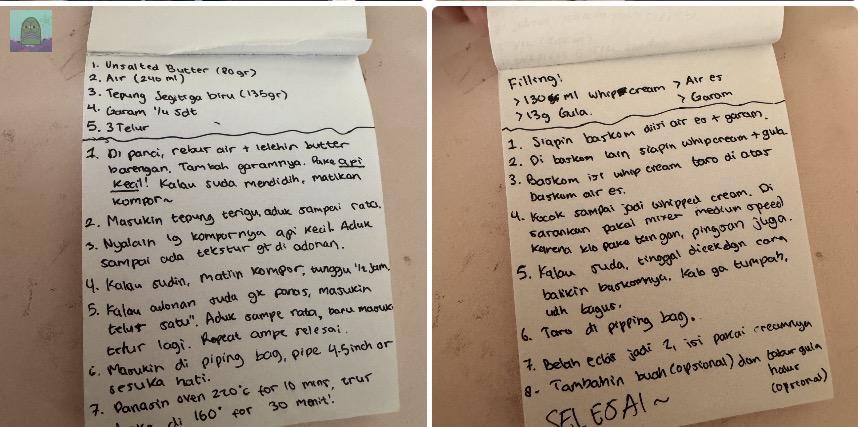 1. Unsalted Butter (80gr)
2. Air (240 ml)
3. Tepung Segitiga biru (135gr)
4. Garam 1/4 sdt
5. 3 Telur
1. Di panci, rebus air + lelehin butter
barengan. Tambah garamnya. Pake api
kecil! Kalau suda mendidih, matikan
kompor~
2. Masukin tepung terigu, aduk sampai rata.
3. Nyalain lg kompornya api kecil. Aduk
sampai ada tekstur gt di adonan.
4. Kalau sudin, matiin kompor, tunggu 1/2 jam
5. Kalau adonan suda gk panas, masukin
telur satu". Aduk sampe rata, baru masuk
telur lagi. Repeat ampe selesai.
6. Masukin di piping bag, pipe 4-5inch or
sesuka hati.
7. Panasin oven 220°c for 10 mins, trur
di 160° for 30 menit!
Filling!
> 130 ml whip cream > Air es
> 13g Gula. > Garam
1. Siapin baskom diisi air es + garam.
2. Di baskom lain siapin whipcream + gula
3. Baskom isi whip cream taro di atas
baskom air es.
4. Kocok sampai jadi whipped cream. Di
sarankan pakai mixer medium speed
karena klo pake tangan, pingsan juga.
5. Kalau suda, tinggal dicek dgn cara
balikin baskomnya. Kalo ga tumpah,
udh bagus.
6. Taro di pipping bag.
7. Belah eclos jadi 2, isi pakai creamnya
8. Tambahin buah (opsional) dan tabur gula
halus
(opsional)
SELESAI ~